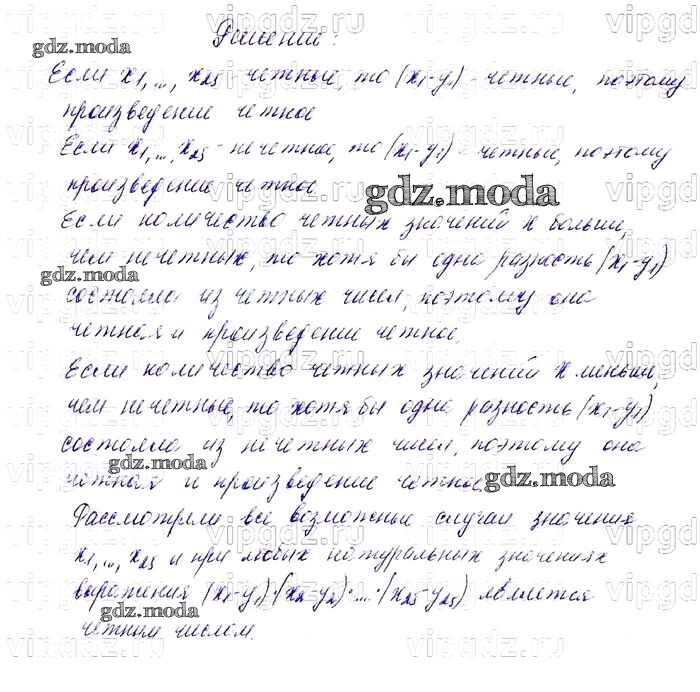 Решение:
Если x₁,..., x₂₅ - четные, то (x₁-y₁) - четные, поэтому
произведение четное
Если x₁,..., x₂₅ - нечетное, то (x₁-y₁) - четные, поэтому
произведение четное
Если количество четных значений x больше,
чем нечетных, то хотя бы одна разность (x₁-y₁)
состояла из четных чисел, поэтому она
четная и произведение четное.
Если количество четных значений x меньше,
чем нечетные, то хотя бы одна разность (x₁-y₁)
состояла из нечетных чисел, поэтому она
четная и произведение четное
Рассмотрели все возможные случаи значения
x₁,..., x₂₅ и при любых натуральных значениях
выражения (x₁-y₁)·(x₂-y₂)·...·(x₂₅-y₂₅) является
четным числом.
gdz.moda
gdz.moda
gdz.moda
gdz.moda
gdz.moda
gdz.moda
vipgdz.ru